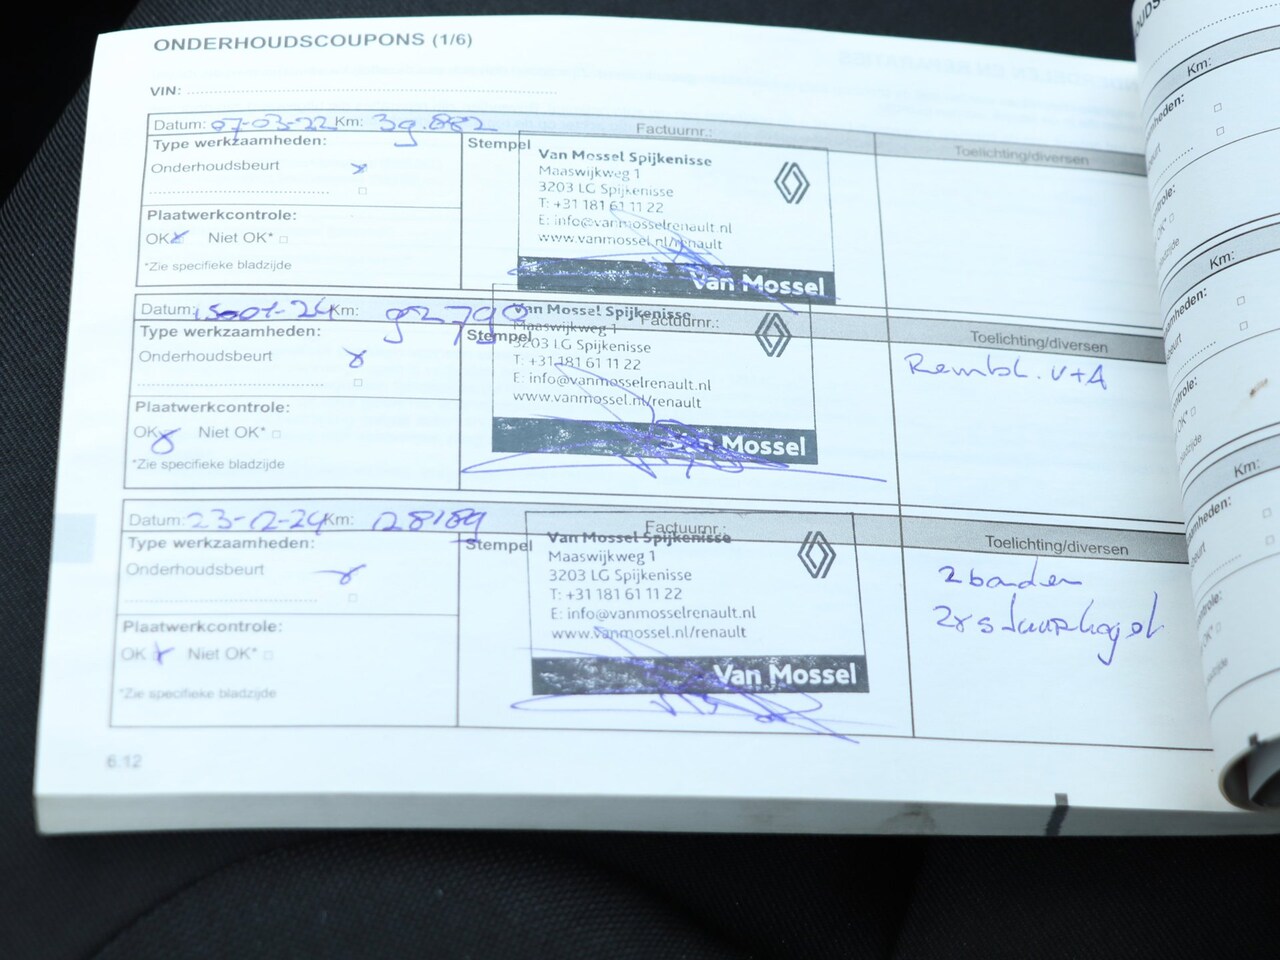 ONDERHOUDSCOUPONS (1/6)
VIN:
Datum: 07-03-22 Km: 39.882 Factuurnr.:
Type werkzaamheden: Stempel Toelichting/diversen
Onderhoudsbeurt x
Plaatwerkcontrole:
OK x Niet OK*
*Zie specifieke bladzijde
Van Mossel Spijkenisse
Maaswijkweg 1
3203 LG Spijkenisse
T: +31 181 61 11 22
E: info@vanmosselrenault.nl
www.vanmossel.nl/renault
Van Mossel
Datum: Km: Factuurnr.:
Type werkzaamheden: Stempel Toelichting/diversen
Onderhoudsbeurt x
Plaatwerkcontrole:
OK x Niet OK*
*Zie specifieke bladzijde
Van Mossel Spijkenisse
Maaswijkweg 1
3203 LG Spijkenisse
T: +31 181 61 11 22
E: info@vanmosselrenault.nl
www.vanmossel.nl/renault
Van Mossel
Rembl. V+A
Datum: 23-12-24 Km: 128189 Factuurnr.:
Type werkzaamheden: Stempel Toelichting/diversen
Onderhoudsbeurt x
Plaatwerkcontrole:
OK x Niet OK*
*Zie specifieke bladzijde
Van Mossel Spijkenisse
Maaswijkweg 1
3203 LG Spijkenisse
T: +31 181 61 11 22
E: info@vanmosselrenault.nl
www.vanmossel.nl/renault
Van Mossel
2 banden
6.12
Km:
Km:
Km: